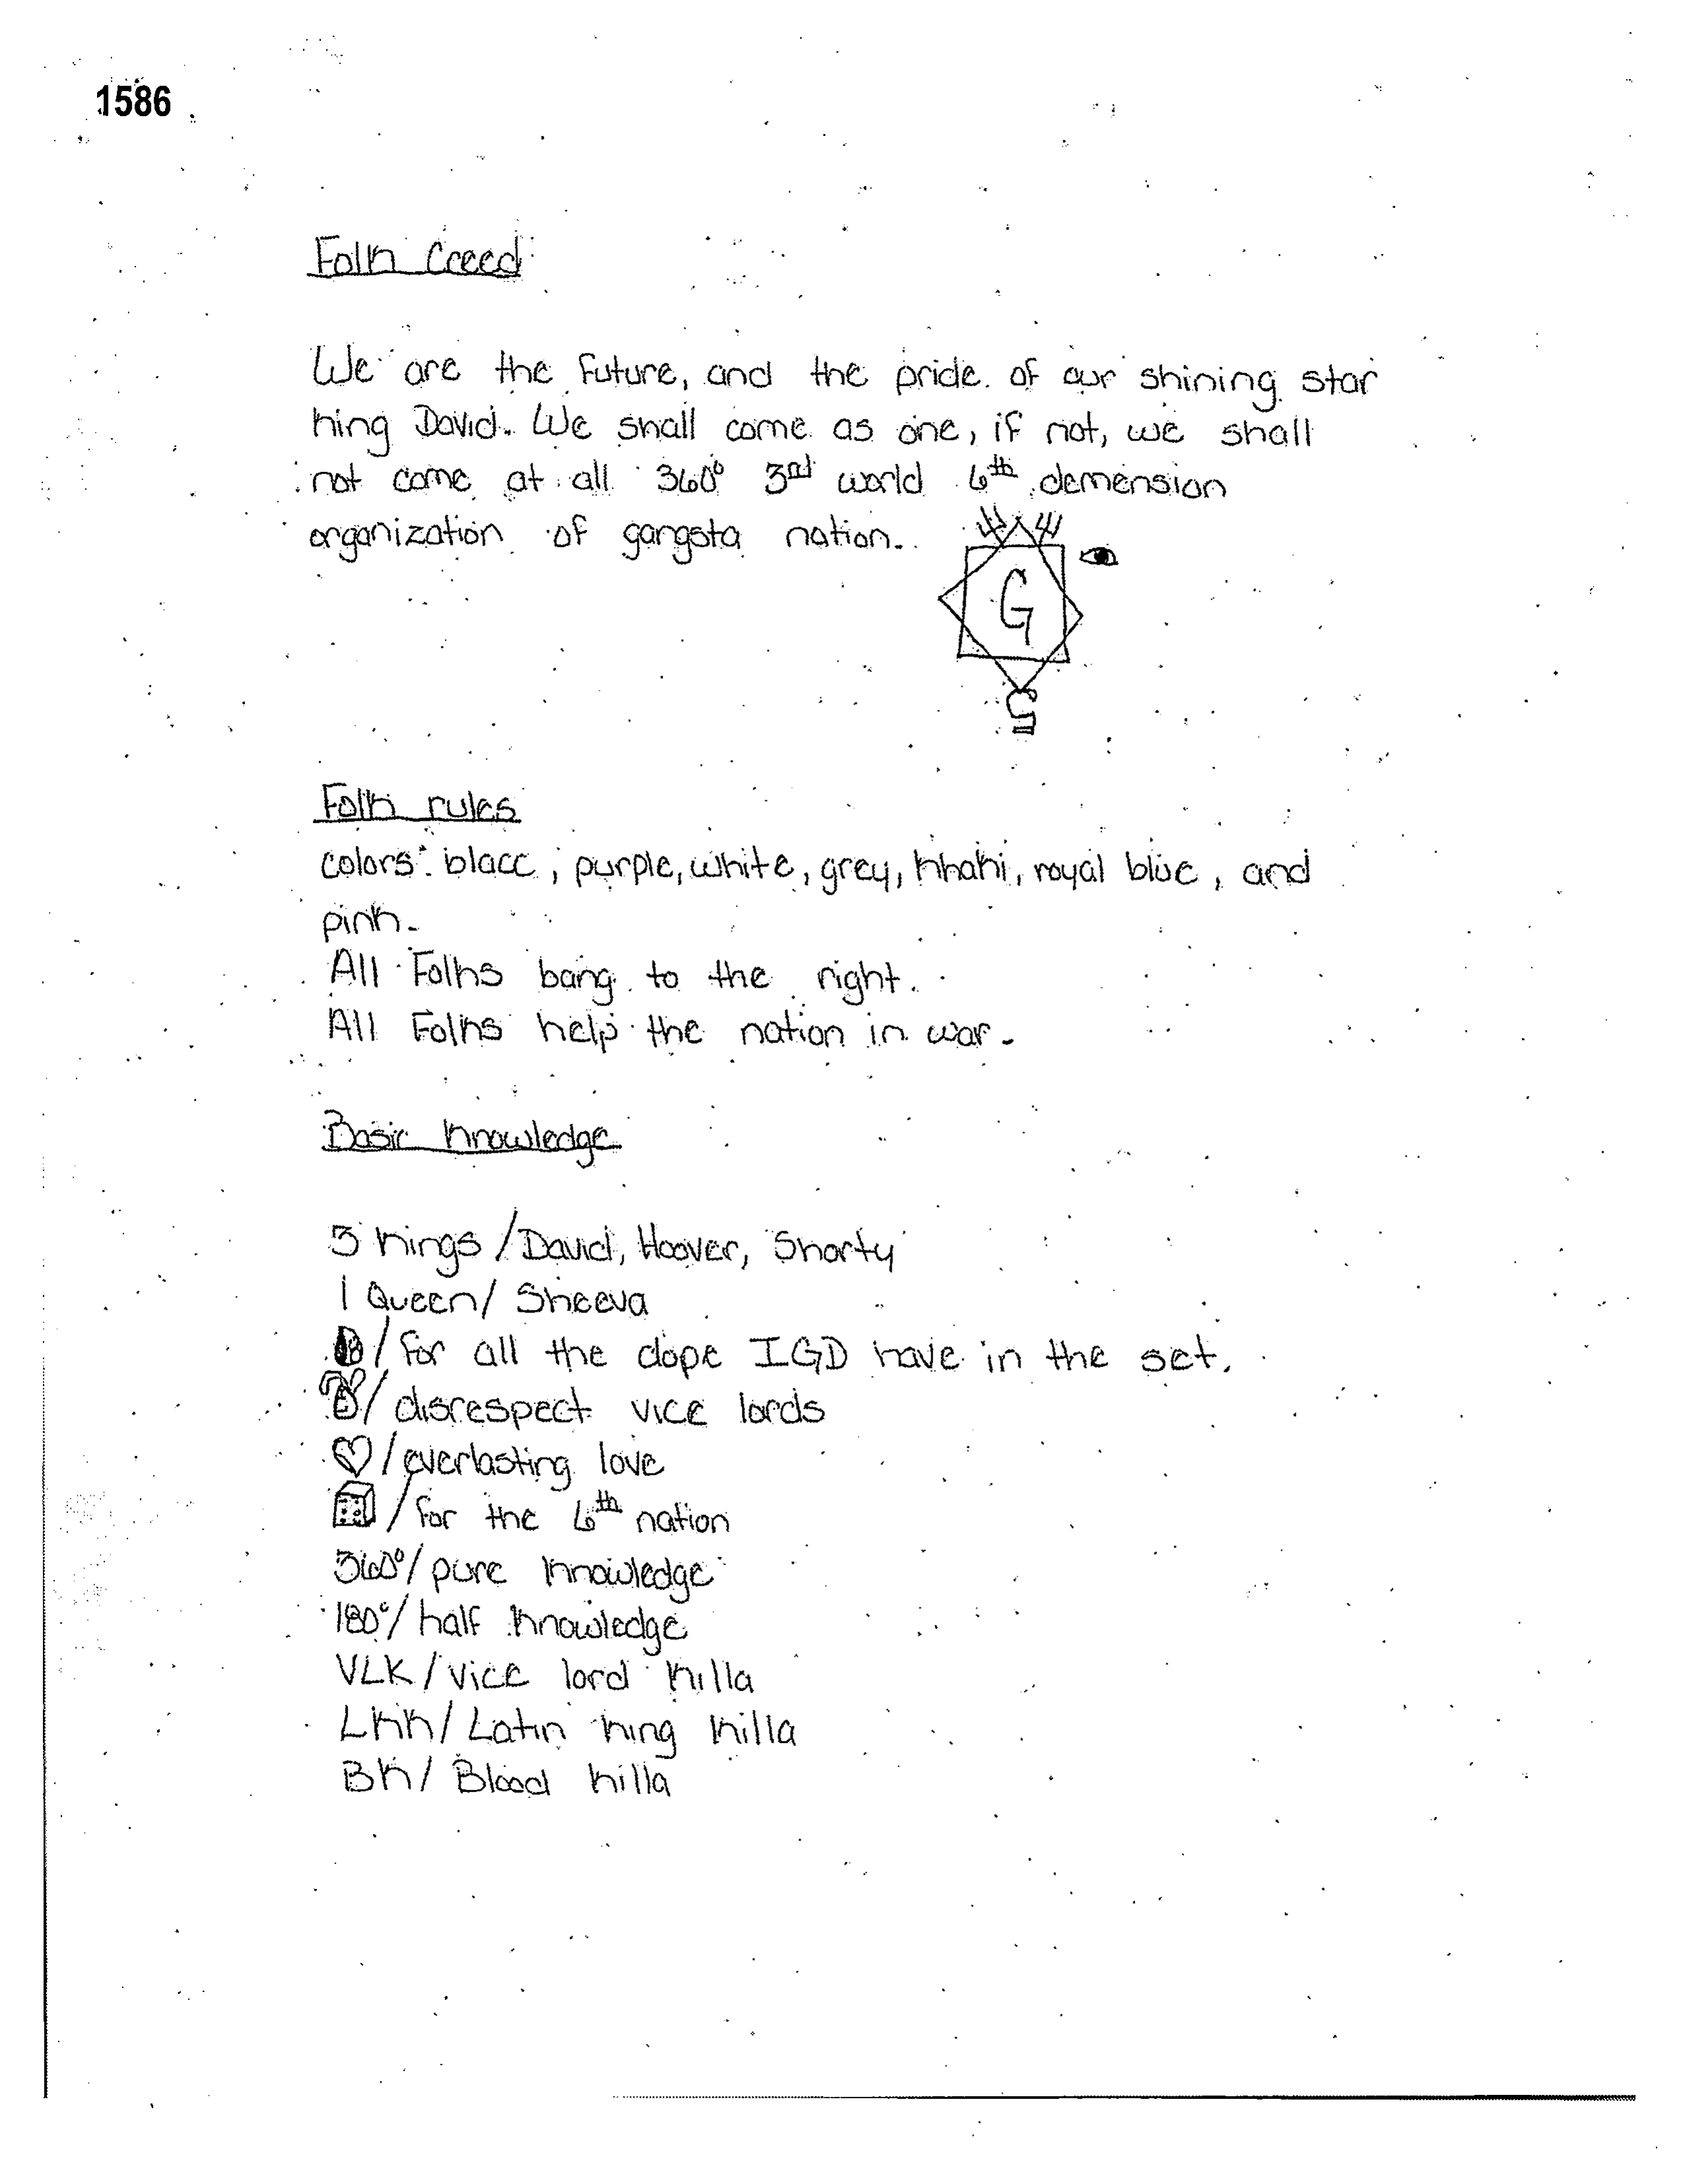 1586
Folk Creed
We are the future, and the pride of our shining star
king David. We shall come as one, if not, we shall
not come at all 360° 3rd world 6th demension
organization of gangsta nation.
G
G
Folk rules
colors: blacc, purple, white, grey, khaki, royal blue, and
pink.
All Folks bang to the right.
All Folks help the nation in war.
Basic knowledge
3 kings / David, Hoover, Shorty
1 Queen / Sheeva
/ for all the dope IGD have in the set.
/ disrespect vice lords
/ everlasting love
/ for the 6th nation
360° / pure knowledge
180° / half knowledge
VLK / vice lord killa
LKK / Latin king killa
BK / Blood killa